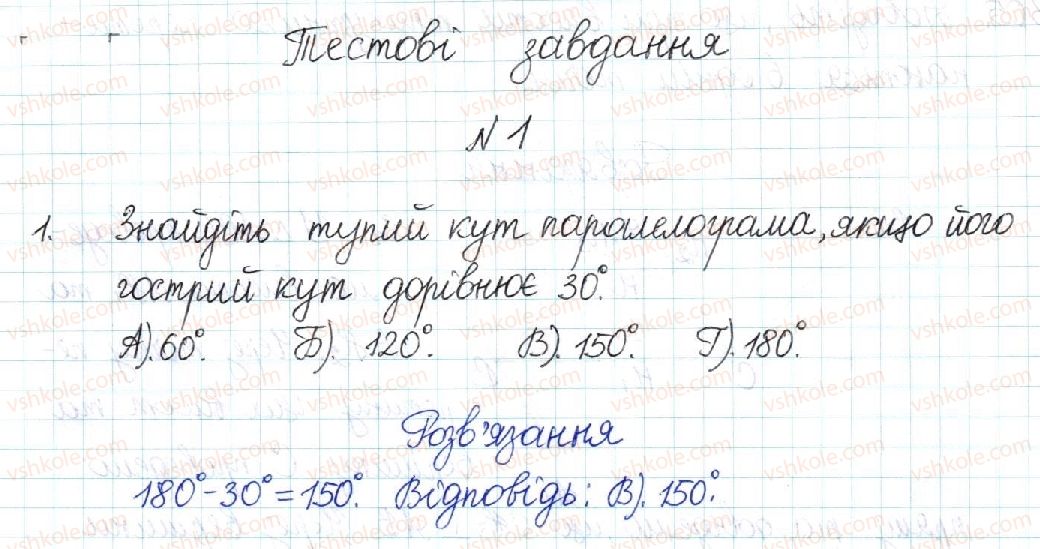 Тестові завдання
№ 1
1. Знайдіть тупий кут паралелограма, якщо його
гострий кут дорівнює 30°.
А). 60°. Б). 120°. В). 150°. Г). 180°.
Розв'язання
180° - 30° = 150°. Відповідь: В). 150°.